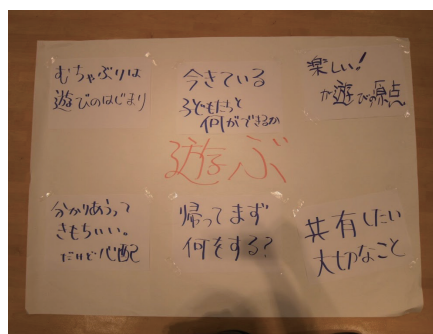 むちゃぶりは
遊びのはじまり
今きている
子どもたちと
何ができるか
楽しい!
が遊びの原点
遊ぶ
分かりあうって
きもちいい。
だけど心配
帰ってまず
何をする?
共有したい
大切なこと